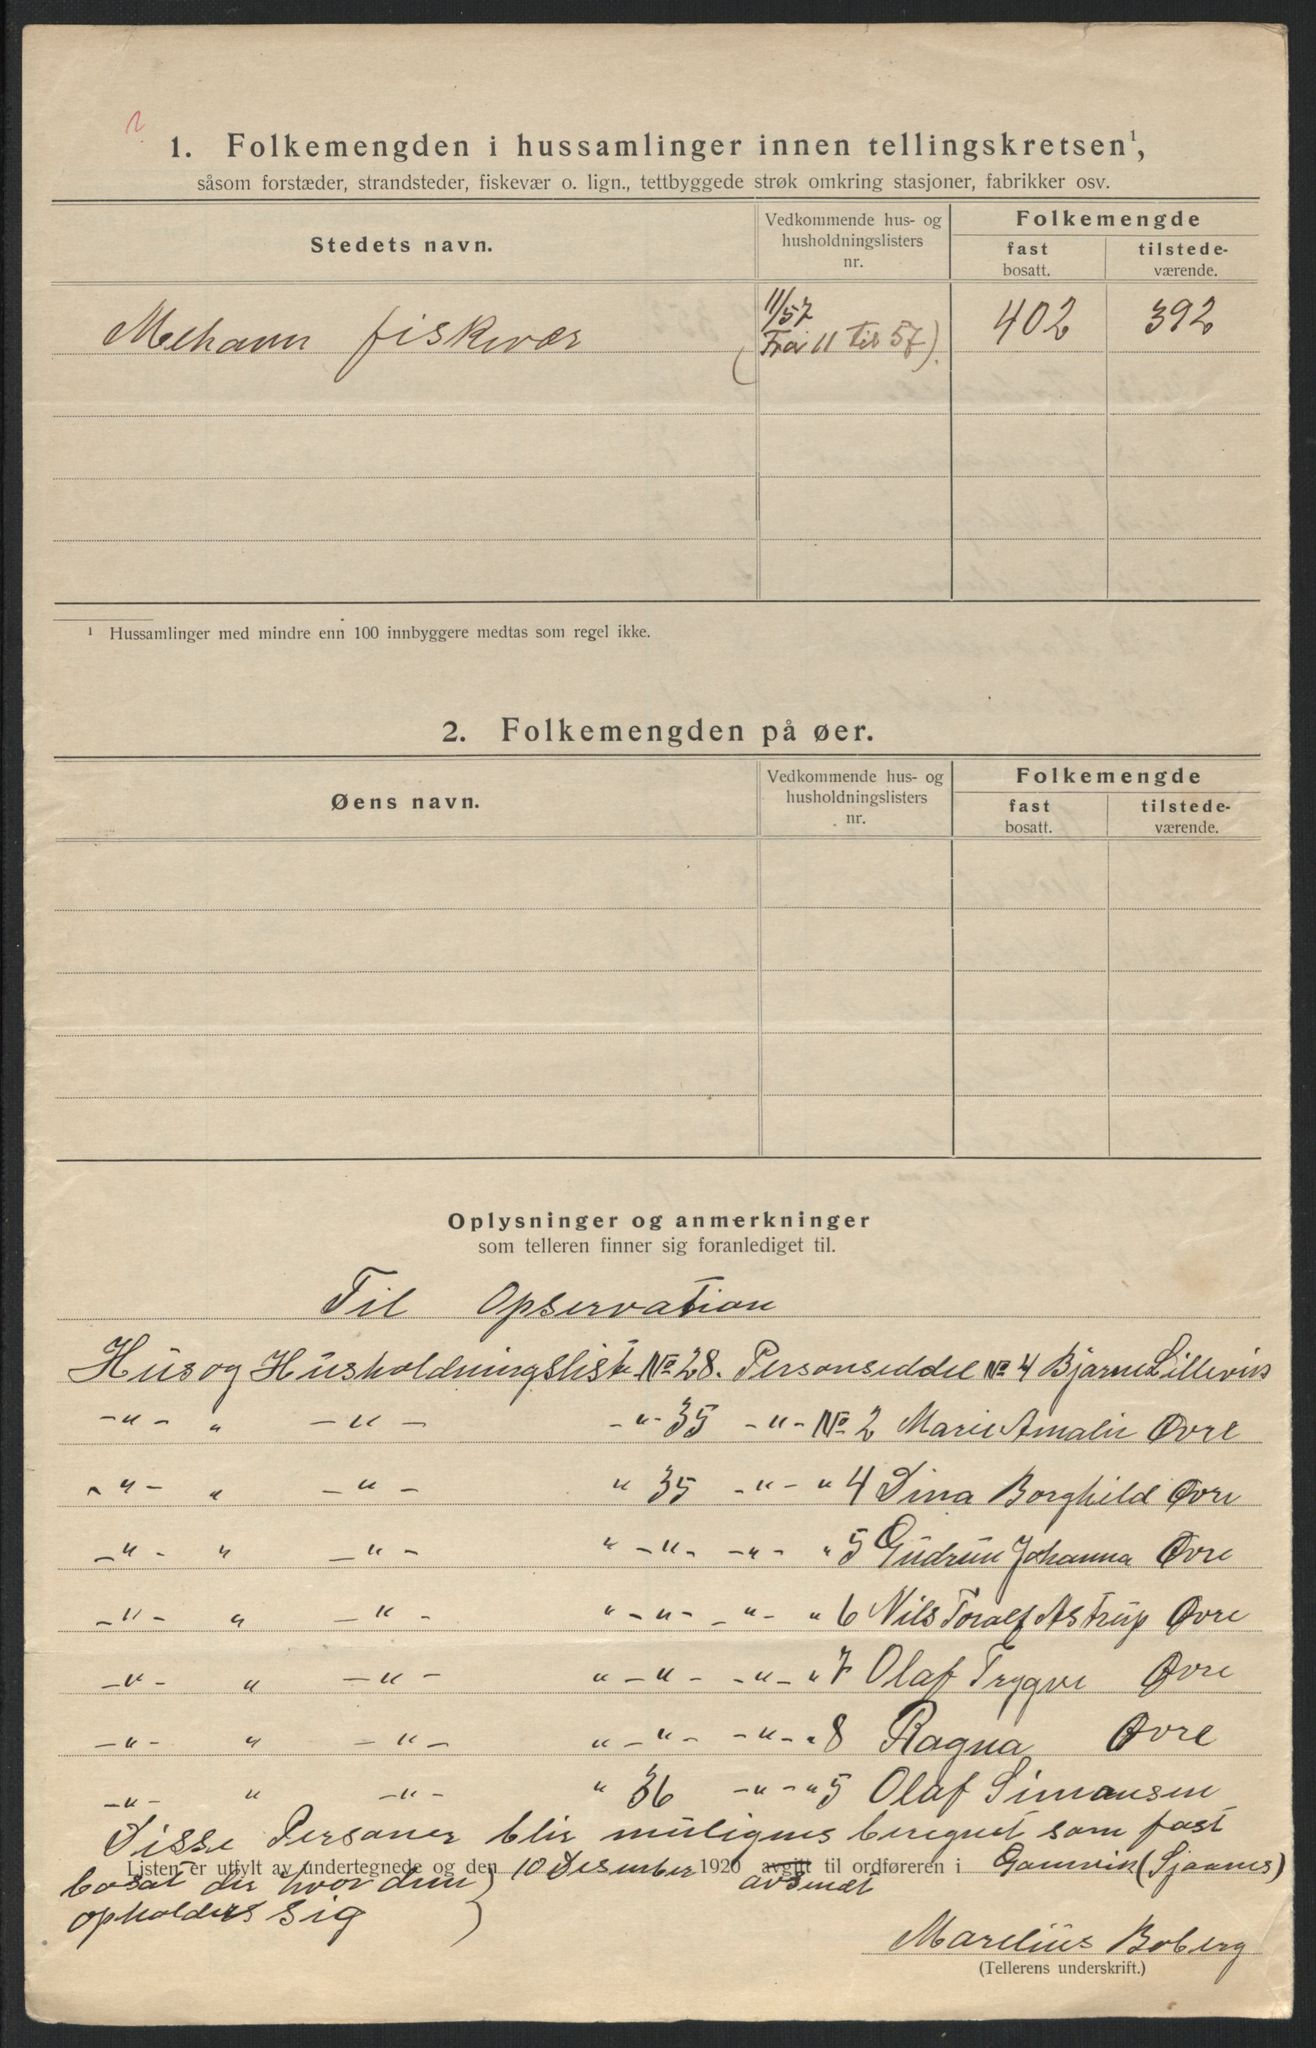 1. Folkemengden i hussamlinger innen tellingskretsen¹,
såsom forstæder, strandsteder, fiskevær o. lign., tettbyggede strøk omkring stasjoner, fabrikker osv.
Stedets navn. Vedkommende hus- og husholdningslisters nr. Folkemengde fast bosatt. tilstede-værende.
Mehavn fiskevær 11/57 (Fra 11 til 57). 402 392
¹ Hussamlinger med mindre enn 100 innbyggere medtas som regel ikke.
2. Folkemengden på øer.
Øens navn. Vedkommende hus- og husholdningslisters nr. Folkemengde fast bosatt. tilstede-værende.
Oplysninger og anmerkninger
som telleren finner sig foranlediget til.
Til Opservation
Hus og Husholdningsliste No 28. Personseddel No 4 Bjarne Lillevik
-"- " -"- -"- 35 -"- No 2 Marie Amalie Øvre
-"- " -"- " 35 -"- " 4 Dina Borghild Øvre
-"- " -"- " -"- -"- " 5 Gudrun Johanna Øvre
-"- " -"- " -"- -"- " 6 Nils Toralf Astrup Øvre
-"- " -"- " -"- -"- " 7 Olaf Trygve Øvre
-"- " -"- " -"- -"- " 8 Ragna Øvre
-"- " -"- " 36 -"- " 5 Olaf Simonsen
Disse Personer blir muligens beregnet som fast
bosat der hvor dem
opholders sig
Listen er utfylt av undertegnede og den 10 Desember 1920 avgitt til ordføreren i Gamvik (Sjaanes)
avsendt
Marelius Boberg
(Tellerens underskrift.)